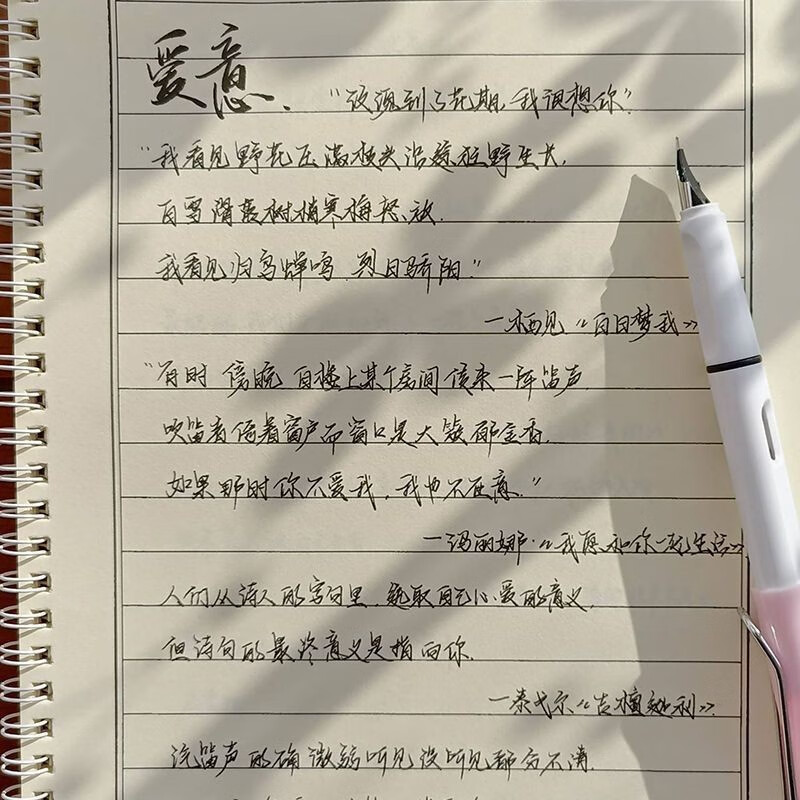 爱意、
"玫瑰到了花期，我很想你"
"我看见野花压满枝头沿途狂野生长，
白雪落最树梢寒梅怒放.
我看见归鸟蝉鸣 烈日骄阳"
—栖见《白日梦我》
"有时 傍晚 自楼上某个房间传来一阵笛声，
吹笛者倚着窗户而窗口是大簇郁金香.
如果那时你不爱我，我也不在意."
—玛丽娜·《我愿和你一起生活》
人们从诗人的字句里，选取自己心爱的意义，
但诗句的最终意义是指向你.
—泰戈尔《吉檀迦利》